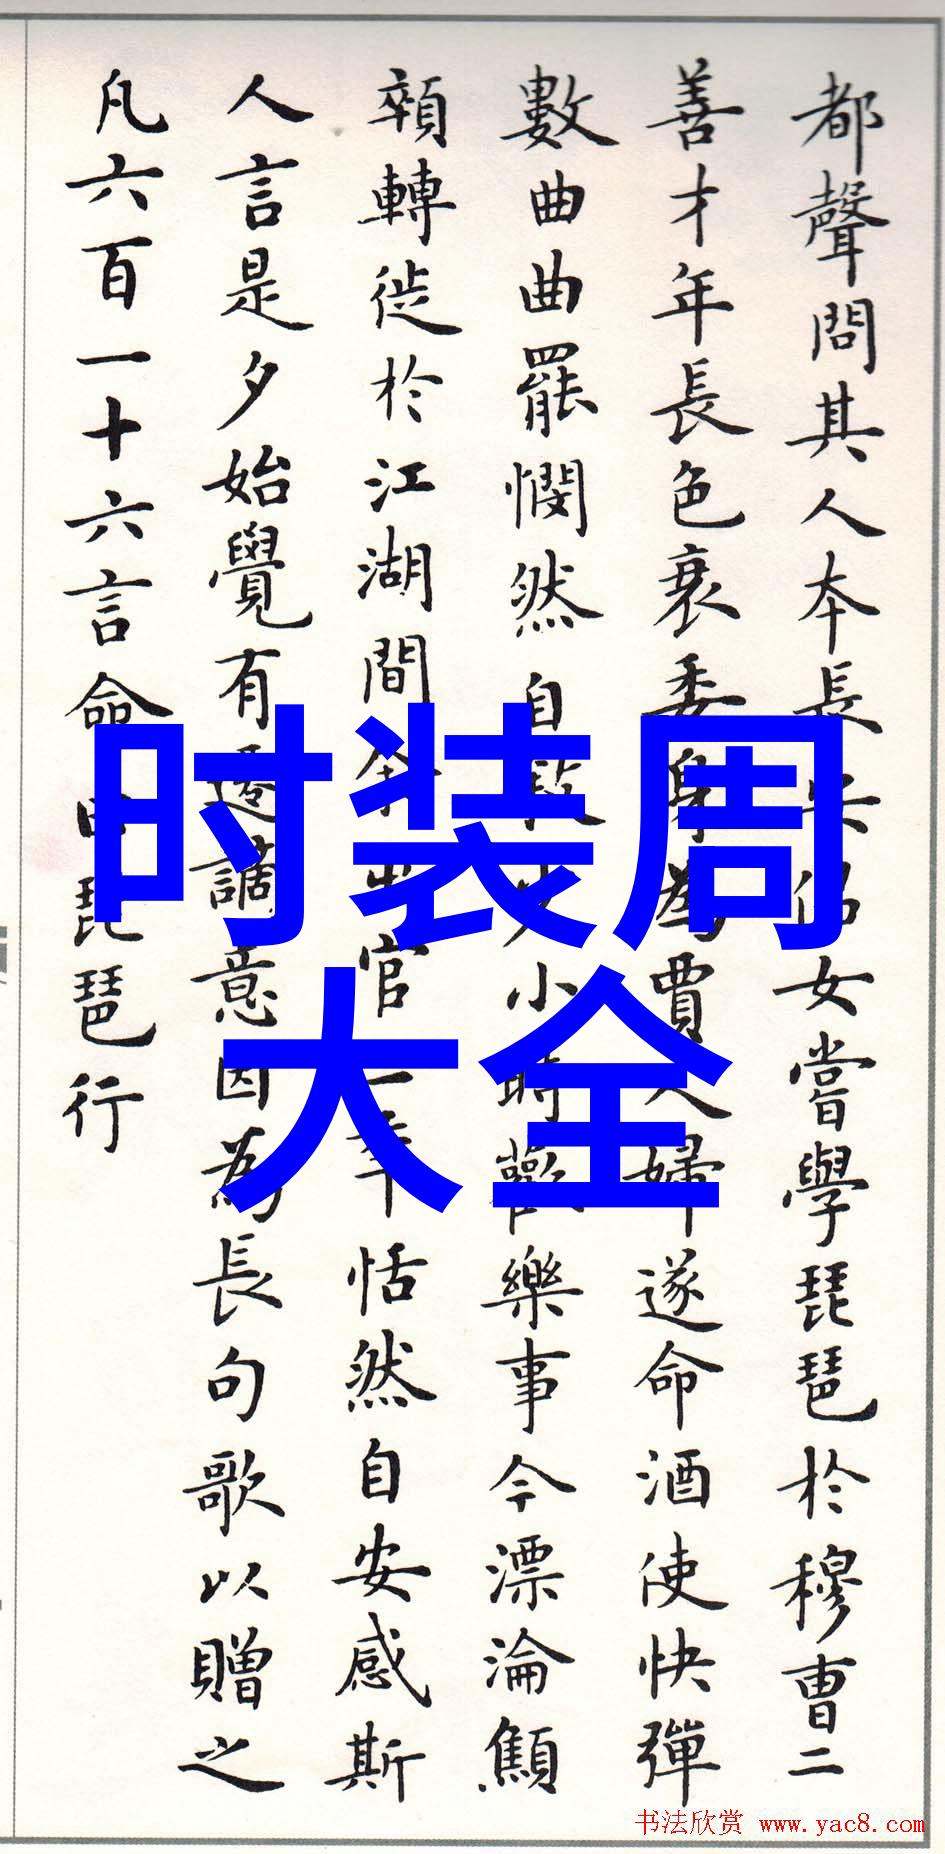 都聲問其人本長安倡女嘗學琵琶於穆曹二
善才年長色衰委身為賈人婦遂命酒使快彈
數曲曲罷憫然自敘少小時歡樂事今漂淪
轉徙於江湖間余出官二年恬然自安感斯
人言是夕始覺有遷謫意因為長句歌以贈之
凡六百一十六言命曰琵琶行
时装周
大全
书法欣赏 www.yac8.com